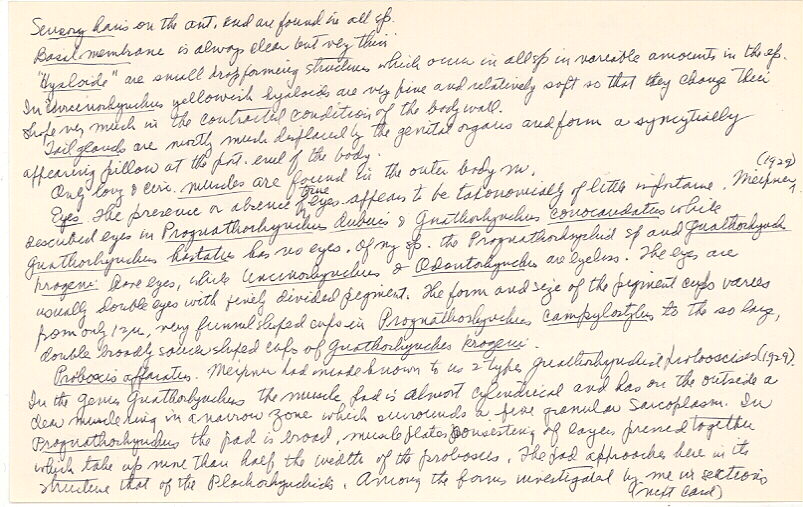 Sensory hairs on the ant. end are found in all sp.
Basal membrane is always clear but very thin.
"Hyaloide" are small drop forming structures which occur in all sp in variable amounts in the ep.
In Uncinorhynchus yellowish hyaloids are very fine and relatively soft so that they change their
shape very much in the contracted condition of the body wall.
Tail glands are mostly much displaced by the genital organs and form a syncytially
appearing pillow at the post. end of the body.
Only long & circ. muscles are found in the outer body m.
Eyes. The presence or absence of true eyes appears to be taxonomically of little importance. Meixner, (1929)
described eyes in Prognathorhynchus and Gnathorhynchus conocaudatus while
Gnathorhynchus hastatus has no eyes. Of my sp. the Prognathorhynchid sp and Gnathorhynch
progeni have eyes, while Uncinorhynchus & Odontorhynchus are eyeless. The eyes are
usually double eyes with finely divided pigment. The form and size of the pigment cups varies
from only 12µ, very funnel shaped cups in Prognathorhynchus campylostylus to the 20 large,
double broadly saucer shaped cups of Gnathorhynchus progeni.
Proboxis apparatus. Meixner had made known to us 2 types gnathorhynchid proboscises (1929).
In the genus Gnathorhynchus the muscle pad is almost cylindrical and has on the outside a
clear muscle ring in a narrow zone which surrounds a fine granular sarcoplasm. In
Prognathorhynchus the pad is broad, muscle plates consisting of layers pressed together
which take up more than half the width of the proboscis. The pad approaches here in its
structure that of the Placorhynchids. Among the forms investigated by me in sections
(next card)